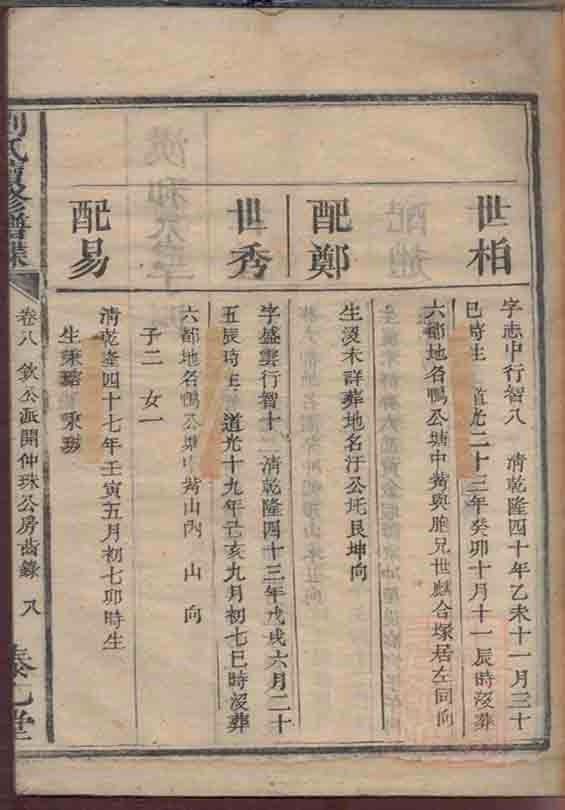 世柏
字志中行智八 清乾隆四十年乙未十一月三十
巳時生 道光二十三年癸卯十月十一辰時沒葬
六都地名鴨公塘中嶺與胞兄世麒合塚居左同向
配鄭
生沒未詳葬地名汙公圫艮坤向
世秀
字盛雲行智十二 清乾隆四十三年戊戌六月二十
五辰時生 道光十九年己亥九月初七巳時沒葬
六都地名鴨公塘中嶺山內 山 向
子二 女一
配易
清乾隆四十七年壬寅五月初七卯時生
生 承
劉氏續修譜牒
卷八 欽公派開仲珠公房齒錄 又八
堂